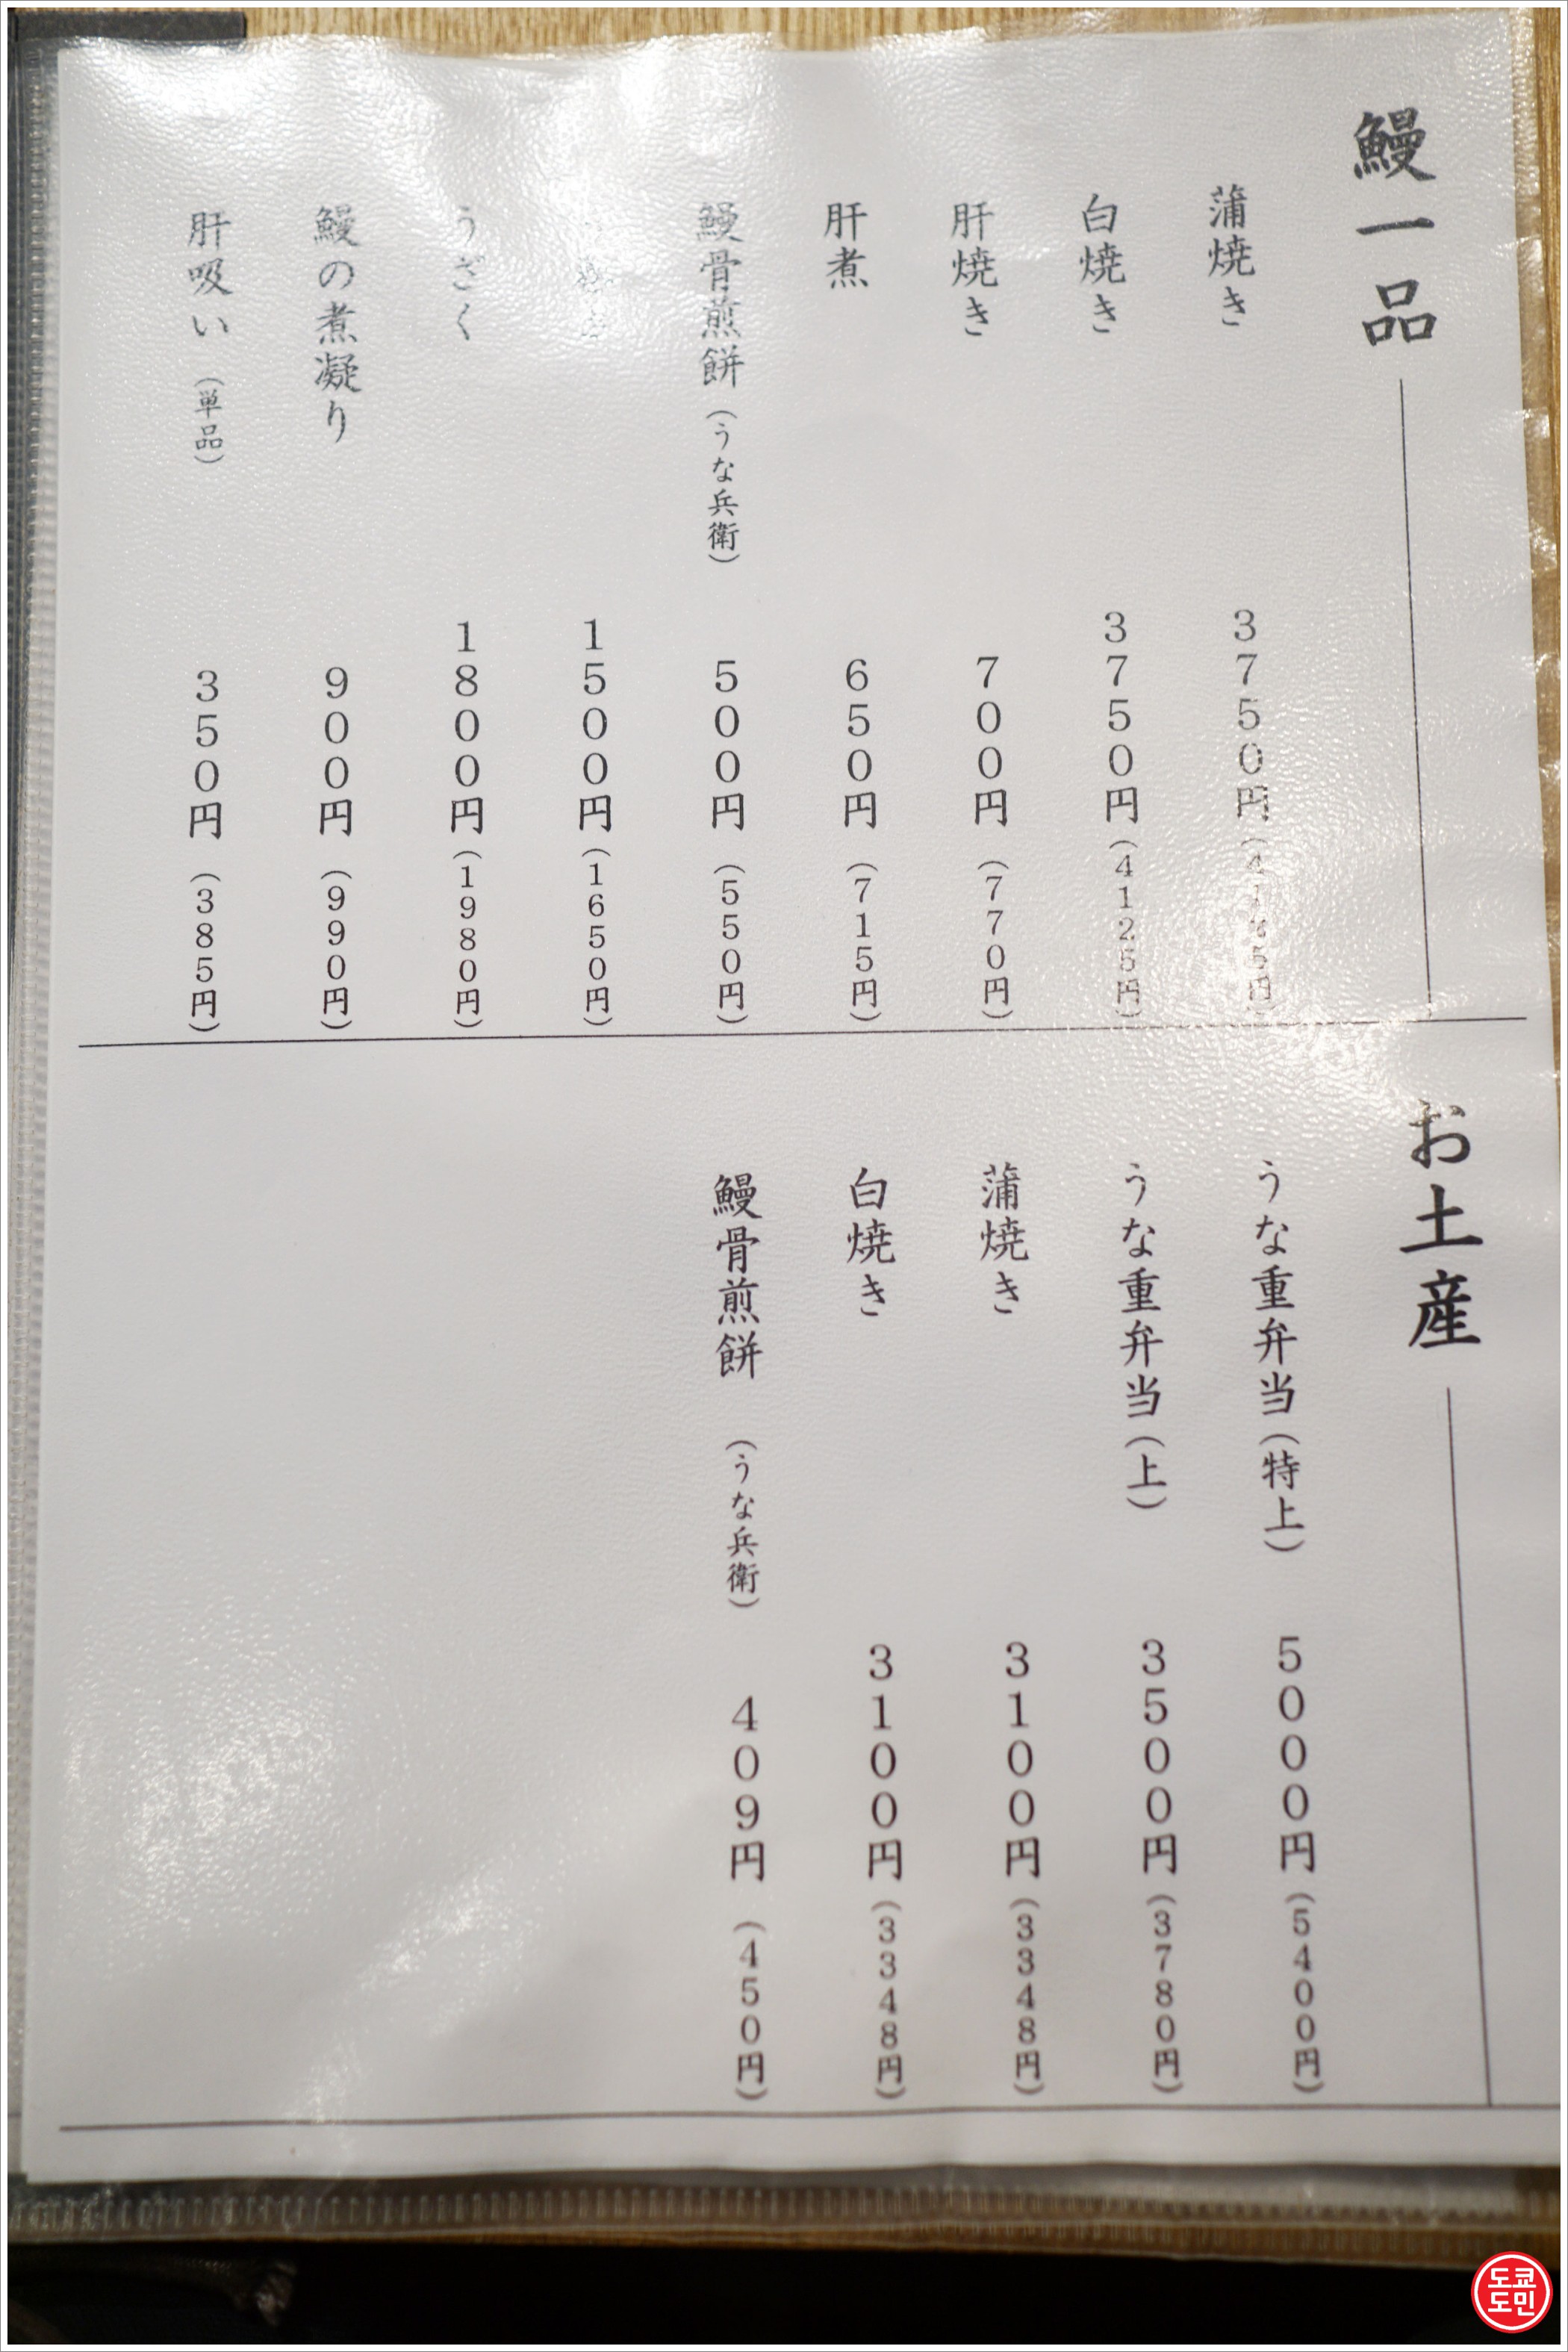 鰻一品
蒲焼き 3750円(4125円)
白焼き 3750円(4125円)
肝焼き 700円(770円)
肝煮 650円(715円)
鰻骨煎餅(うな兵衛) 500円(550円)
1500円(1650円)
うざく 1800円(1980円)
鰻の煮凝り 900円(990円)
肝吸い(単品) 350円(385円)
お土産
うな重弁当(特上) 5000円(5400円)
うな重弁当(上) 3500円(3780円)
蒲焼き 3100円(3348円)
白焼き 3100円(3348円)
鰻骨煎餅(うな兵衛) 409円(450円)
도쿄
도민